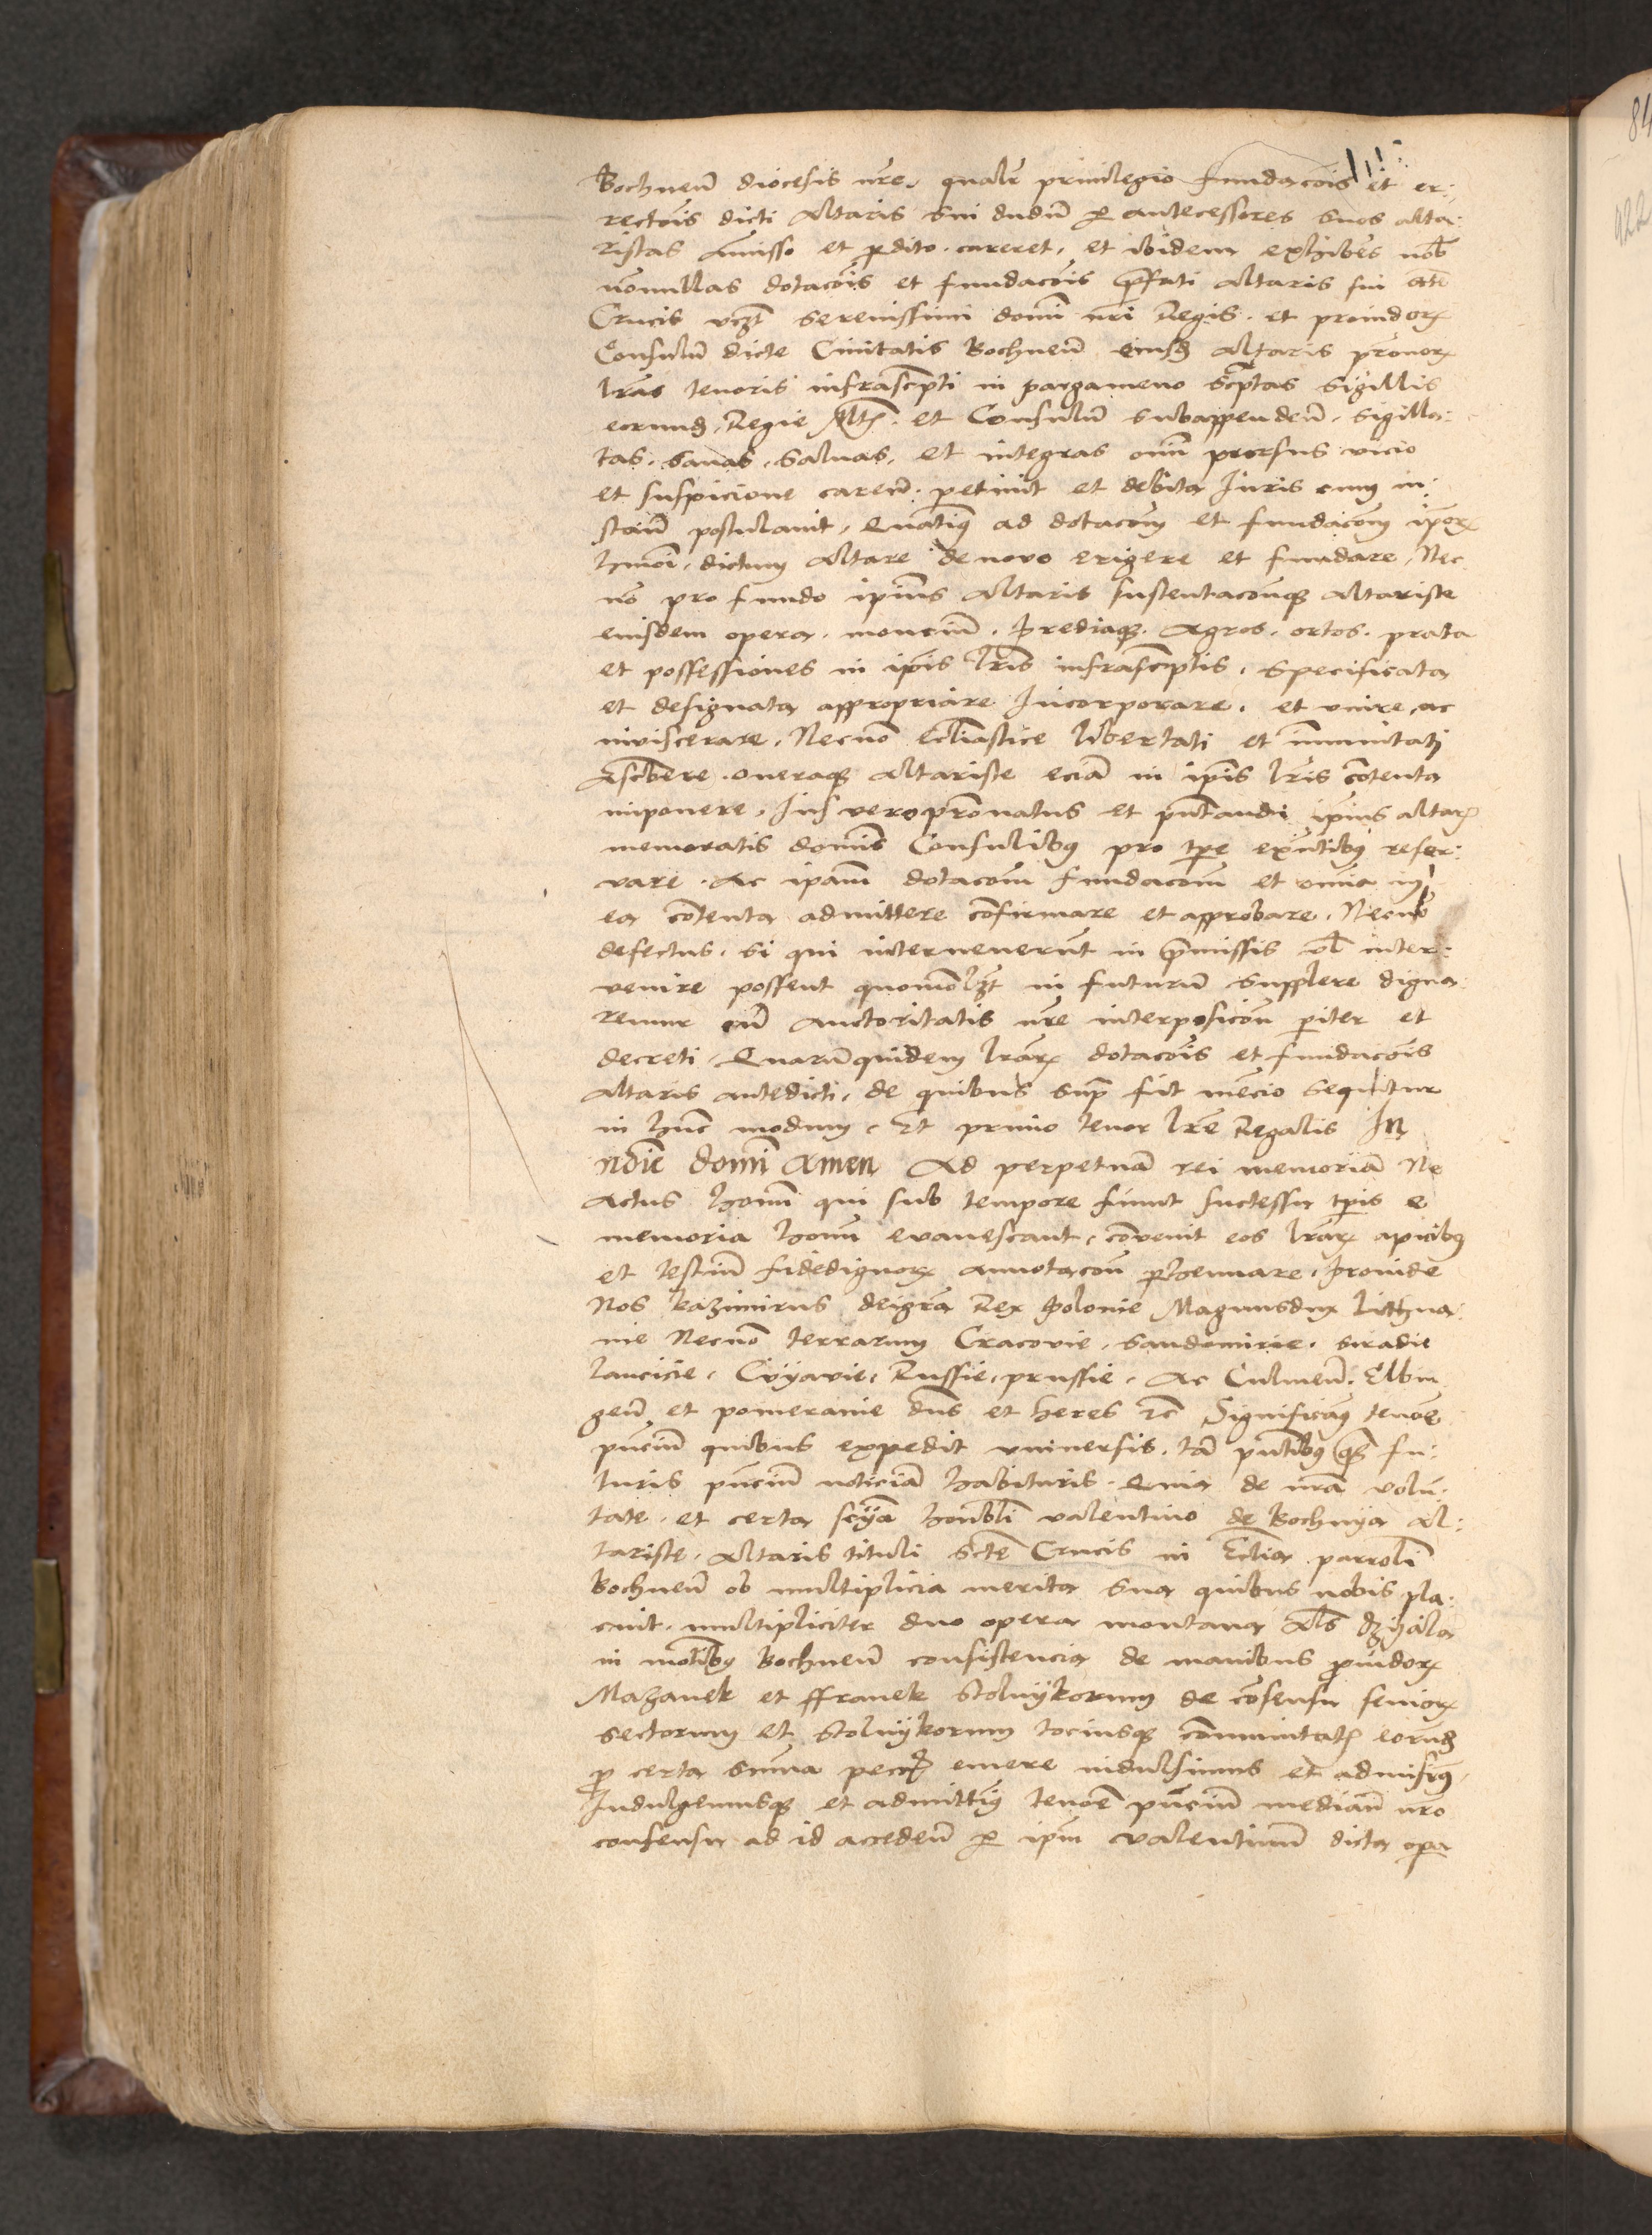 Bochneñ diocesis nr̃e, qualr̃ privilegio fundacõis et er:
rectõis dicti Altaris sui dudũ p antecessores suos alta:
ristas Amisso et pdito. careret, et ibidem exhibẽs nob̃
nõnullas dotacõis et fundacõis p̃fati altaris sui sctẽ
Crucis vcz̃t serenissimi domĩ nr̃i Regis. et proudorꝝ
Consulũ dicte Civitatis Bochneñ eiusđ altaris pr̃onorꝝ
lr̃as tenoris infrascr̃pti in pargameno scr̃ptas sigillis
eorumđ, Regie Mt̃is. et Consulũ subappendeñ. sigilla:
tas. sanas, salvas, et integras om̃i prorsus vicio
et suspicione careñ. petivit et debita Juris cum in:
stañ postulavit, Quatinꝰ ad dotacõm et fundacõm ip̃orꝝ
hm̃oi, dictum Altare de novo erigere et fundare, Nec
nõ pro fundo ip̃ius Altaris sustentacõnꝙ altariste
eiusdem opera. monciũ. Prediaꝙ. Agros. ortos. prata
et possessiones in ip̃is lr̃is infrascr̃iptis, specificata
et designata appropriare Incorporare, et vnire, ac
inviscerare, Necnõ Eccl̃iastice libertati et im̃unitati
Ascr̃bere. oneraꝙ Altariste eciã in ip̃is lr̃is cõtenta
imponere, Jus vero pr̃onatus et pñtandi ip̃ius altaꝝ
memoratis domĩs Consulibꝰ pro tp̃e exñtibꝰ reser:
vare. Ac ipam dotacõm fundacõm et omĩa in
ea cõtenta admittere cõfirmare et approbare, Necnõ
defectus, si qui intervenerũt in p̃missis vl̃ inter:
venire possent quomolz̃t in futurũ supplere digna:
remur cũ Auctoritatis nr̃e interposicõn piter et
decreti, Quarũquidem lr̃arꝝ dotacõis et fundacõis
altaris antedicti, de quibus sup̃ fit mẽcio sequitur
in hũc modum, Et primo tenor lr̃e Regalis In
nõie domĩ Amen Ad perpetuã rei memoriã Ne
Actus homĩ qui sub tempore fiunt successu tp̃is e
memoria homĩ evanescant, cõvenit eos lr̃arꝝ apicibꝰ
et testiũ fidedignorꝝ annotacõn phennare, Proinde
Nos kazimirus deigr̃a Rex Polonie Magnusdux Litthua:
nie Necnõ terrarum Cracovie, Sandomirie, Siradie
Lancicie, Cuyavie, Russie, prussie, Ac Culmeñ. Elbin
geñ et pomeranie dñs et heres zc̃ Significamꝰ tenoẽ
pñciũ quibus expedit vniversis, tã pñtibꝰ ꝙ fu:
turis pñciũ noticiã habituris. Quia de nr̃a volũ:
tate, et certa scy̾a honorb̃li valentino de Bochnya Al:
tariste, Altaris tituli Sctẽ Crucis in Eccl̃ia parroli
Bochneñ ob multiplicia merita sua quibus nobis pla:
cuit, multipliciter duo opera montana al̃s dzyala
in mõtibꝰ Bochneñ consistencia de manibus ꝓuidorꝝ
Mazanek et ffranek Stolnykorum de cõsensu seniorꝝ
sectorum et Stolnykorum tociusꝙ cõmunitat̃ eorũđ
ꝓ certa sum̃a pecc̃ emere indulsimus et admisimꝰ
Indulgemusꝙ et admittimꝰ tenoẽ pñciũ mediañ nr̃o
consensu ad id accedeñ p ip̃m Valentinũ dicta opa